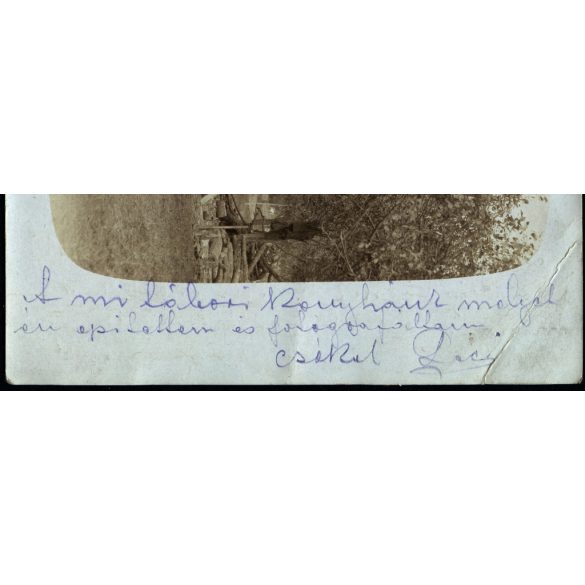 A mi tábori konyhánk melyet
én epitettem és fotografáltam
csókol Laci